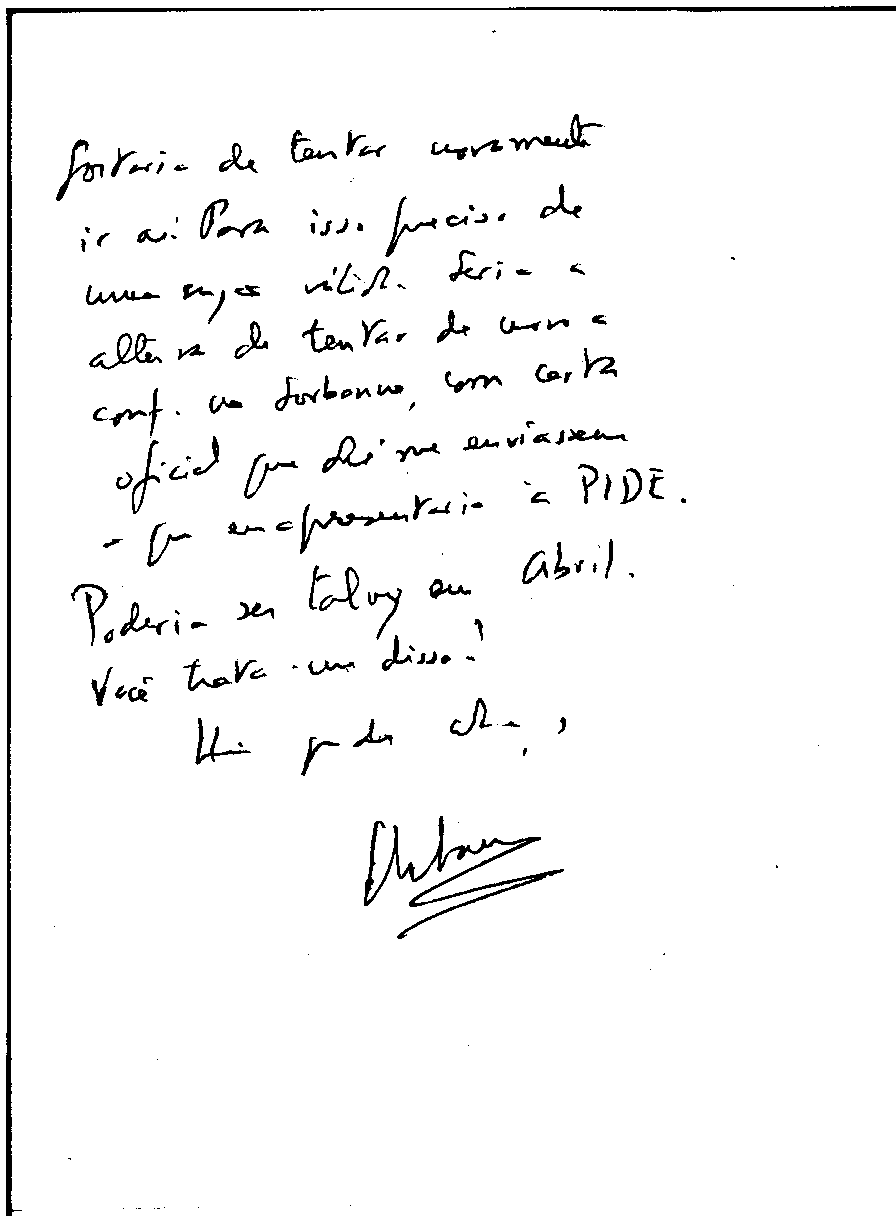 gostaria de tentar novamente
ir aí. Para isso preciso de
uma razão válida. Seria a
altura de tentar de novo a
conf. na Sorbonne, com carta
oficial que daí me enviassem
- que eu apresentaria à PIDE.
Poderia ser talvez em Abril.
Você trata-me disso?
Um grande